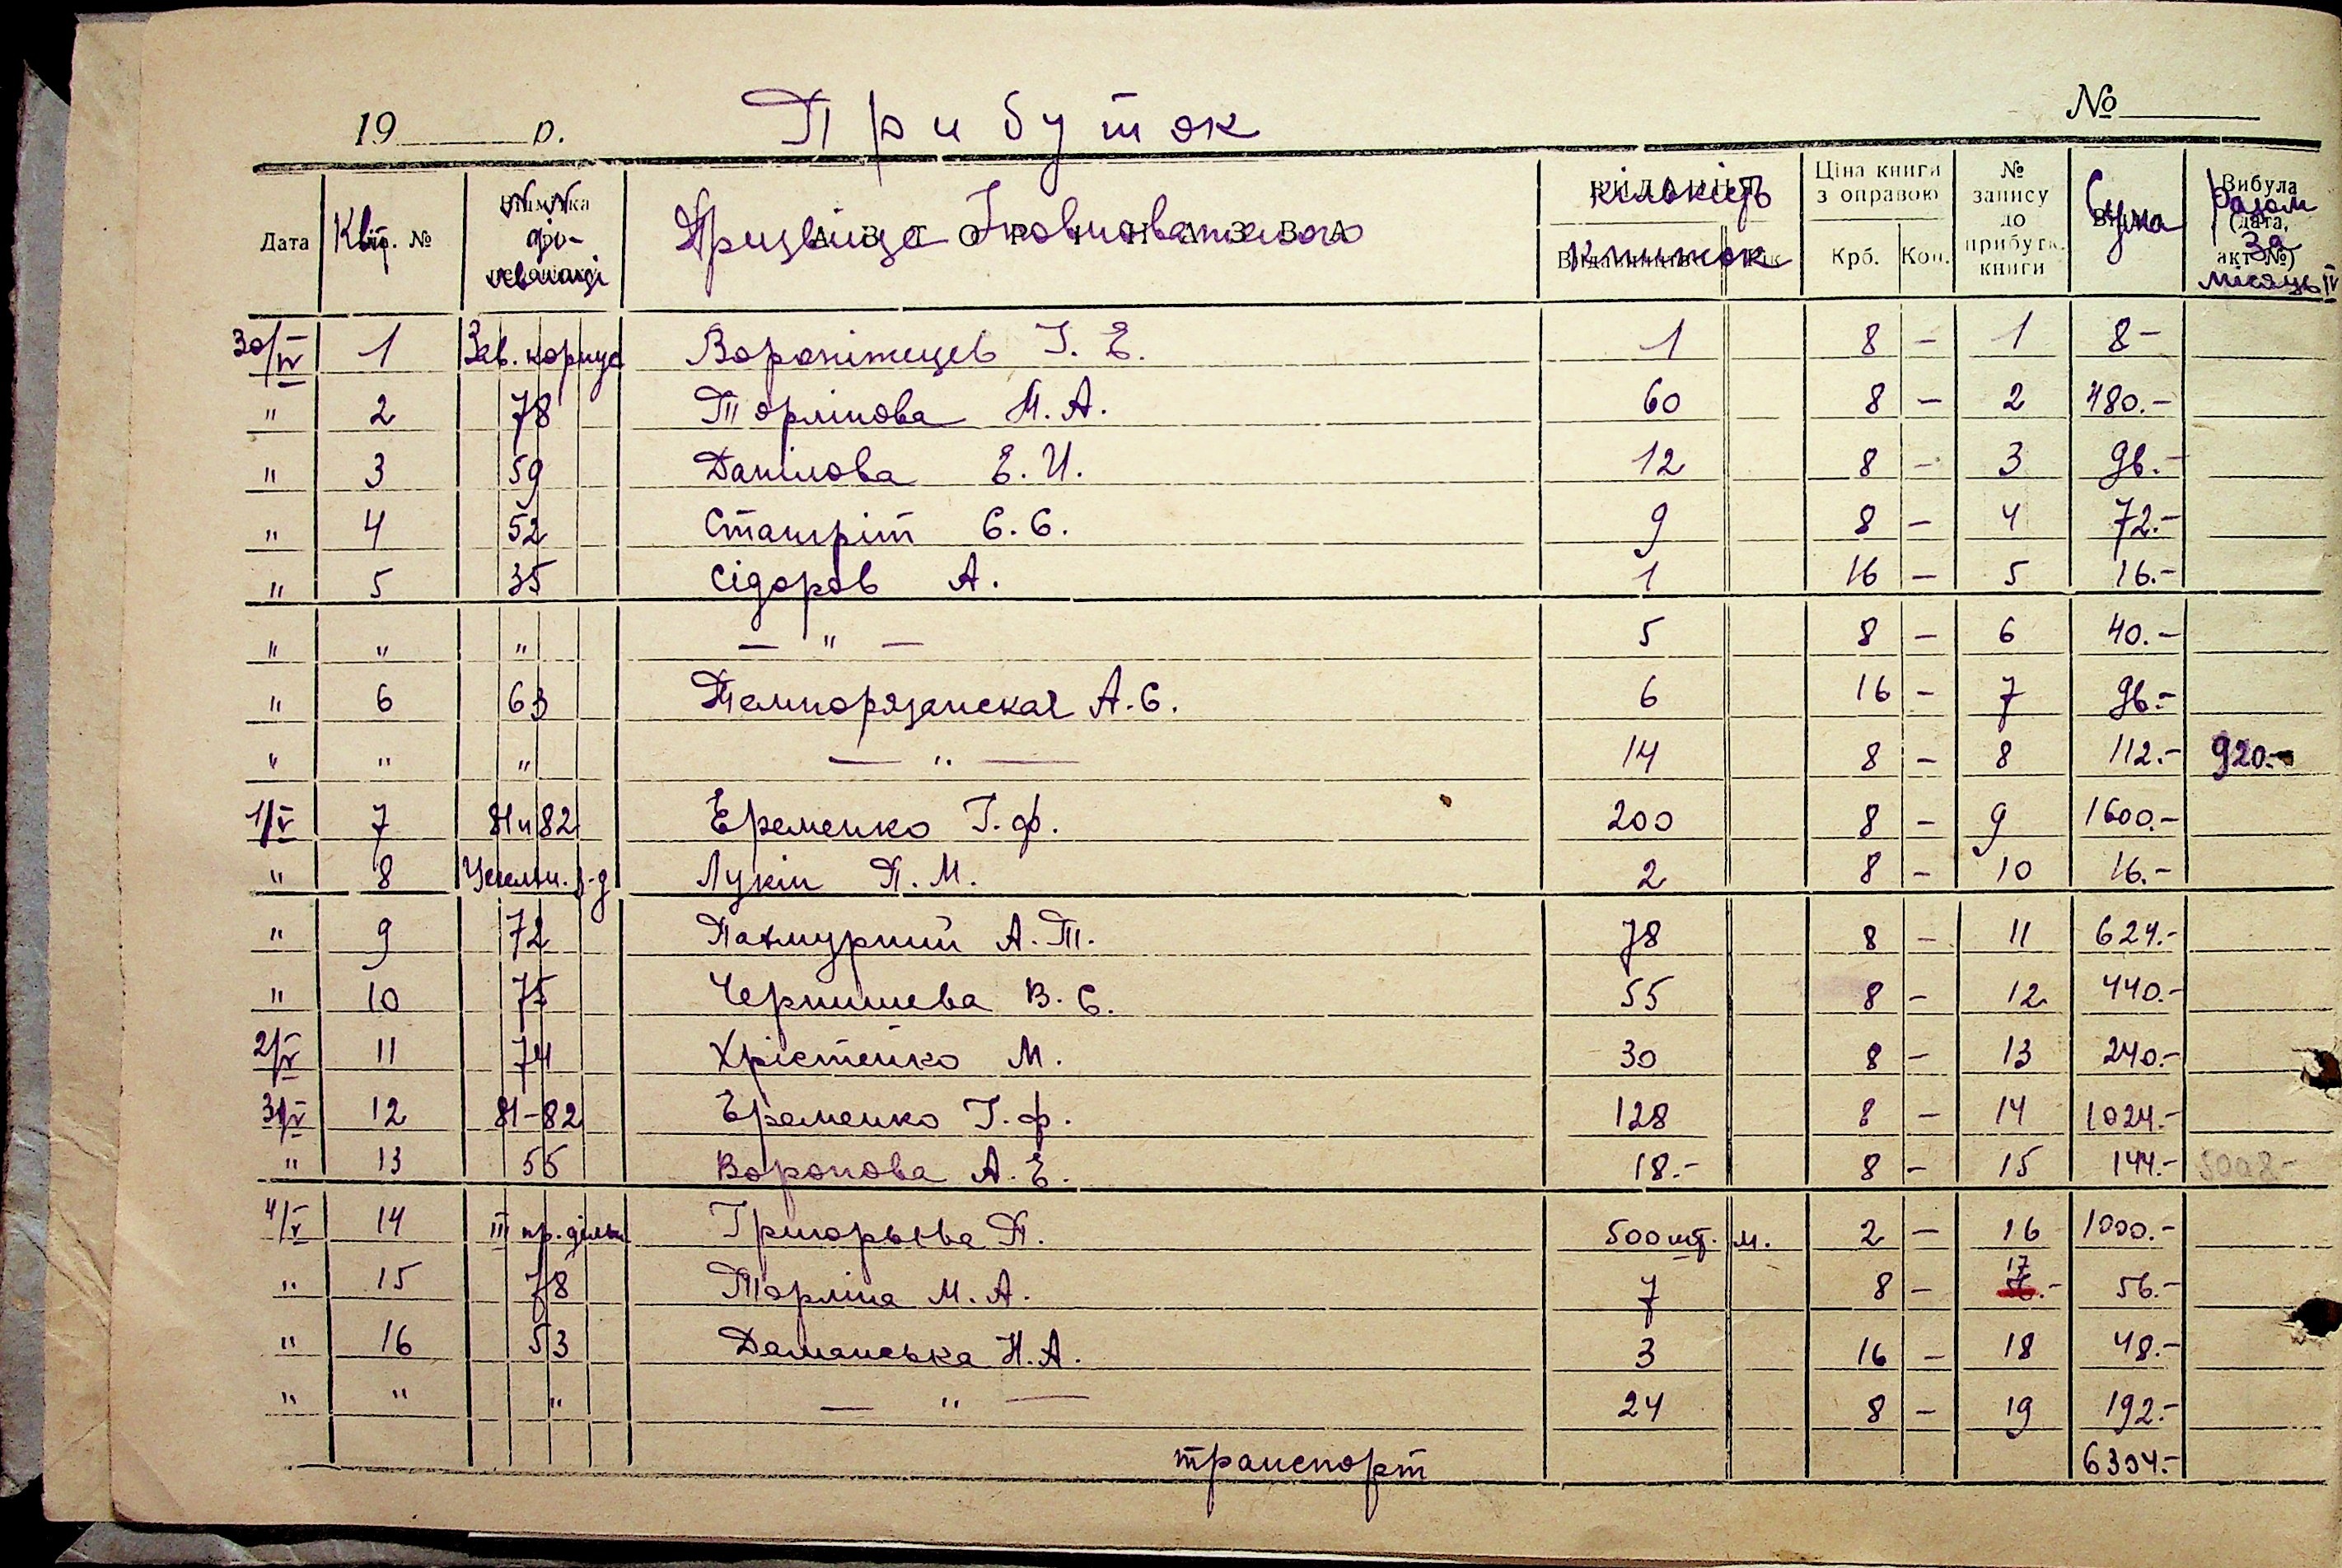 19 р. Прибуток №
Дата Квит. № №№ Прізвіще Кількість книжок Ціна книги з оправою Крб. Коп. № запису до прибутк. книги Сума Разом за місяць IV
30/IV 1 Зав. корпус Воронітцев І. Е. 1 8 – 1 8–
" 2 78 Торлінова М. А. 60 8 – 2 480.–
" 3 59 Данілова Е. И. 12 8 – 3 96.–
" 4 52 Стангріт Є. Є. 9 8 – 4 72.–
" 5 35 Сідоров А. 1 16 – 5 16.–
" " " — " — 5 8 – 6 40.–
" 6 63 А. С. 6 16 – 7 96.–
" " " — " — 14 8 – 8 112.– 920.–
1/V 7 81 и 82 Еременко Г. Ф. 200 8 – 9 1600.–
" 8 Лукін П. М. 2 8 – 10 16.–
" 9 72 Пахмурний А. Т. 78 8 – 11 624.–
" 10 75 Чернишева В. С. 55 8 – 12 440.–
2/V 11 74 Хрістенко М. 30 8 – 13 240.–
3/V 12 81–82 Еременко Г. Ф. 128 8 – 14 1024.–
" 13 55 Воронова А. Е. 18.– 8 – 15 144.– 5008–
4/V 14 III пр. дільн Григорьєва П. 500 шт. м. 2 – 16 1000.–
" 15 78 Торліна М. А. 7 8 – 17 56.–
" 16 53 Даманська Н. А. 3 16 – 18 48.–
" " " — " — 24 8 – 19 192.–
транспорт 6304.–